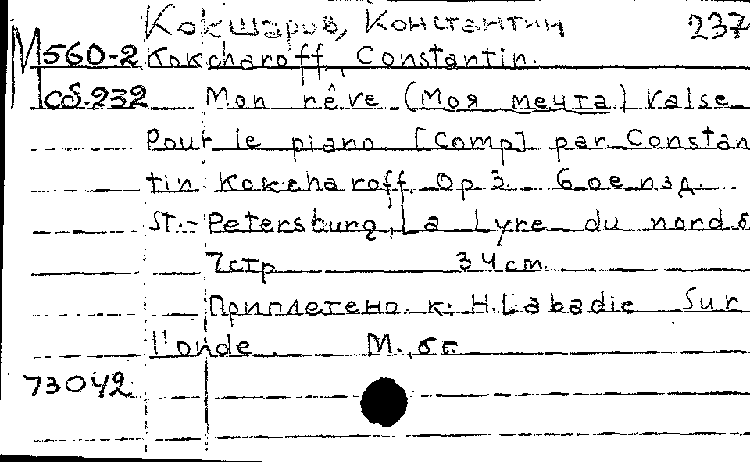 Кокшаров, Константин 237
М560-2 Kokcharoff, Constantin.
cб.232 Mon rêve (Моя мечта) Valse
pour le piano [Comp] par Constan
tin Kokcharoff. Op 3. 6ое изд.
St.-Petersburg, La Lyre du nord б
7стр 34cm.
Приплетено к: H. Labadie Sur
l'onde. М., бг.
73042